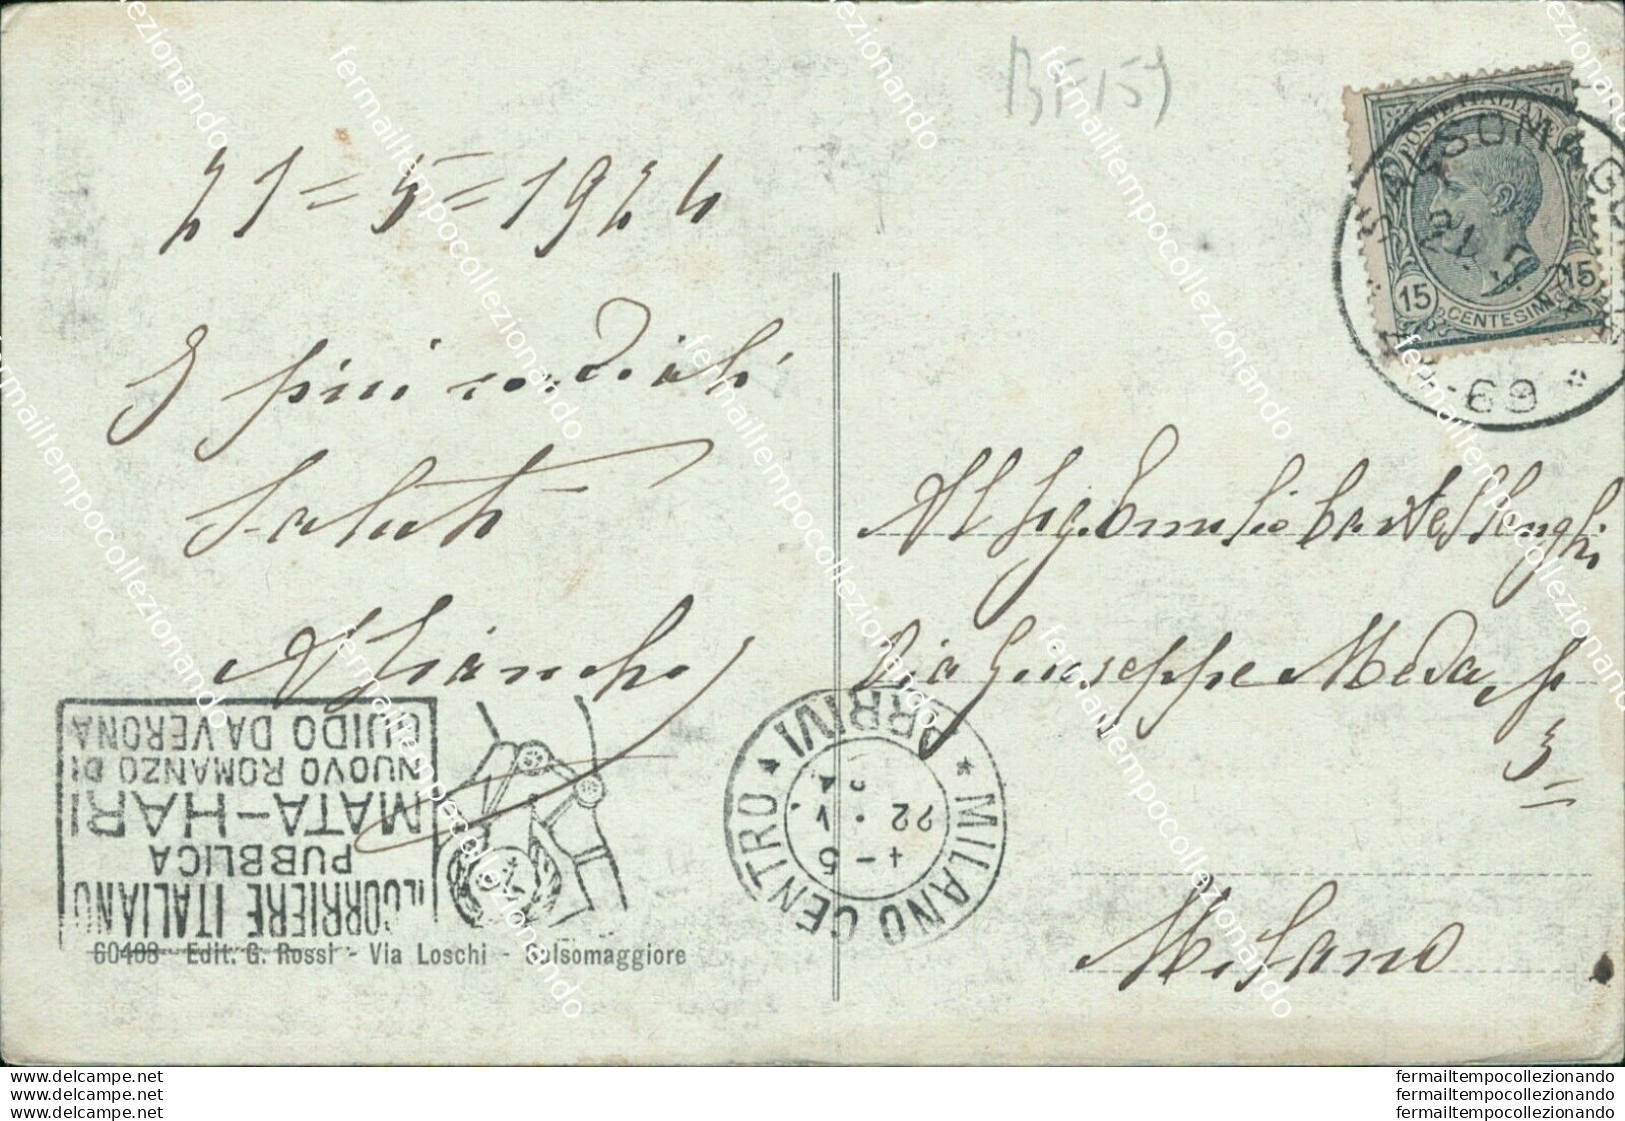 BF157
21=5=1924
I più cordiali
Saluti
Al Sig. Emilio Castellenghi
Via Giuseppe Meda, N
3=
Milano
POSTE ITALIANE
15
15
CENTESIMI
SALSOMAGGIORE
69
IL CORRIERE ITALIANO
PUBBLICA
MATA-HARI
NUOVO ROMANZO DI
GUIDO DA VERONA
MILANO CENTRO
ARRIVI
60408 - Edit. G. Rossi - Via Loschi - Salsomaggiore
fermailtempocollezionando
www.delcampe.net
www.delcampe.net
www.delcampe.net
fermailtempocollezionando
fermailtempocollezionando
fermailtempocollezionando